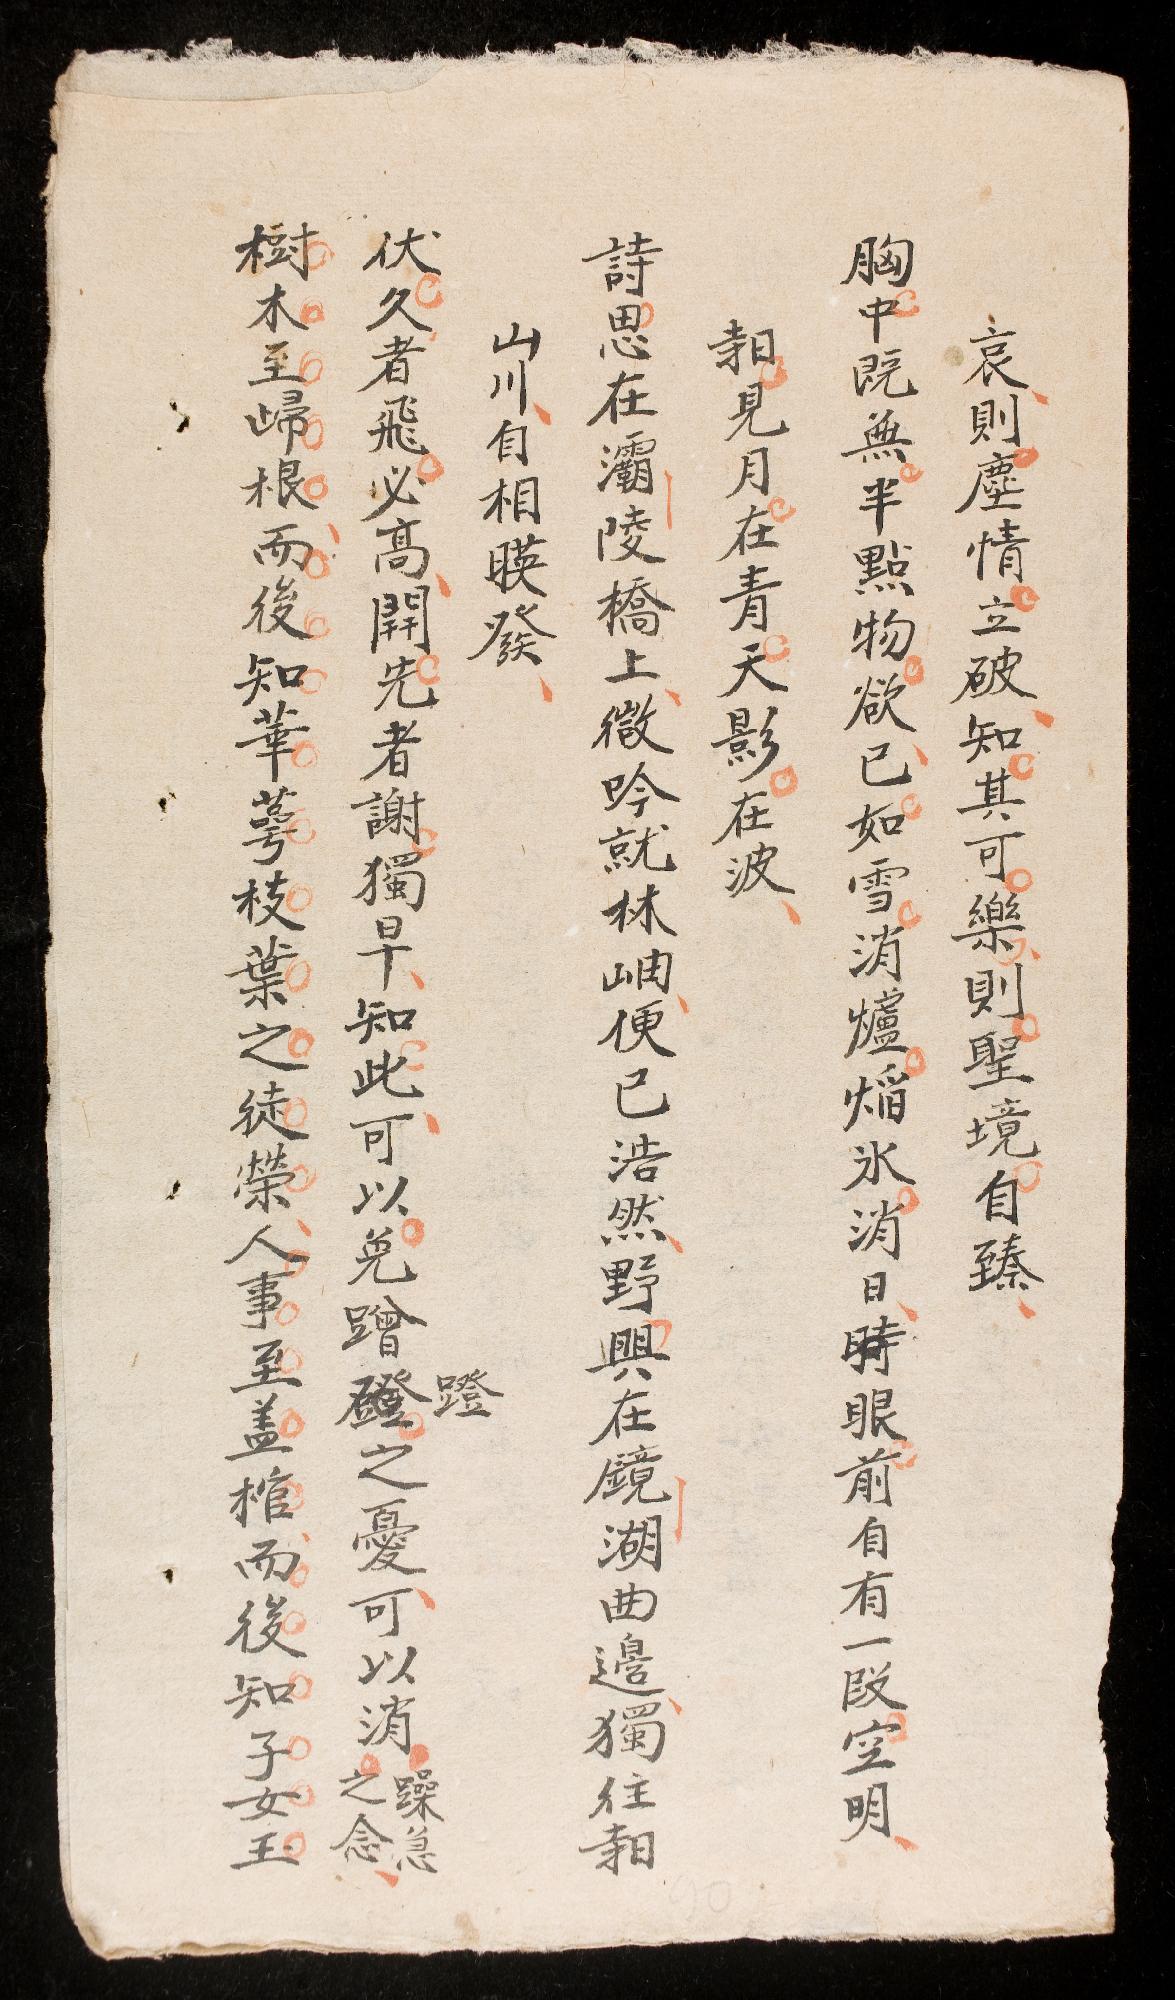 哀則塵情立破知其可樂則聖境自臻
胸中既無半點物欲已如雪消爐焰氷消日時眼前自有一段空明
㝵見月在青天影在波
詩思在灞陵橋上微吟就林岫便已浩然野興在鏡湖曲邊獨往㝵
山川自相暎發
伏久者飛必高開先者謝獨早知此可以免蹭磴之憂可以消躁急之念
蹬
樹木至歸根而後知華萼枝葉之徒榮人事至盖棺而後知子女玉